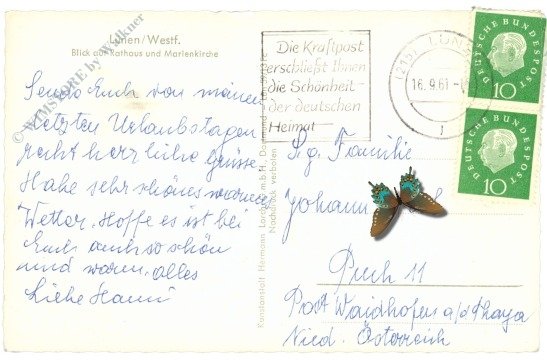 Lünen/Westf.
Blick auf Rathaus und Marienkirche
© WIMSTORE by Walkner
Sende Euch von meinen
letzten Urlaubstagen
recht herzliche Grüsse.
Habe sehr schönes warmes
Wetter. Hoffe es ist bei
Euch auch so schön
und warm. Alles
Liebe Hanni
Kunstanstalt Hermann Lorch m.b.H., Dortmund
Nachdruck verboten
Die Kraftpost
erschließt Ihnen
die Schönheit
der deutschen
Heimat
LÜNEN
16.9.61
DEUTSCHE BUNDESPOST
10
DEUTSCHE BUNDESPOST
10
S.g. Familie
Johann
Puch 11
Post Waidhofen a/d Thaya
Nied. Österreich